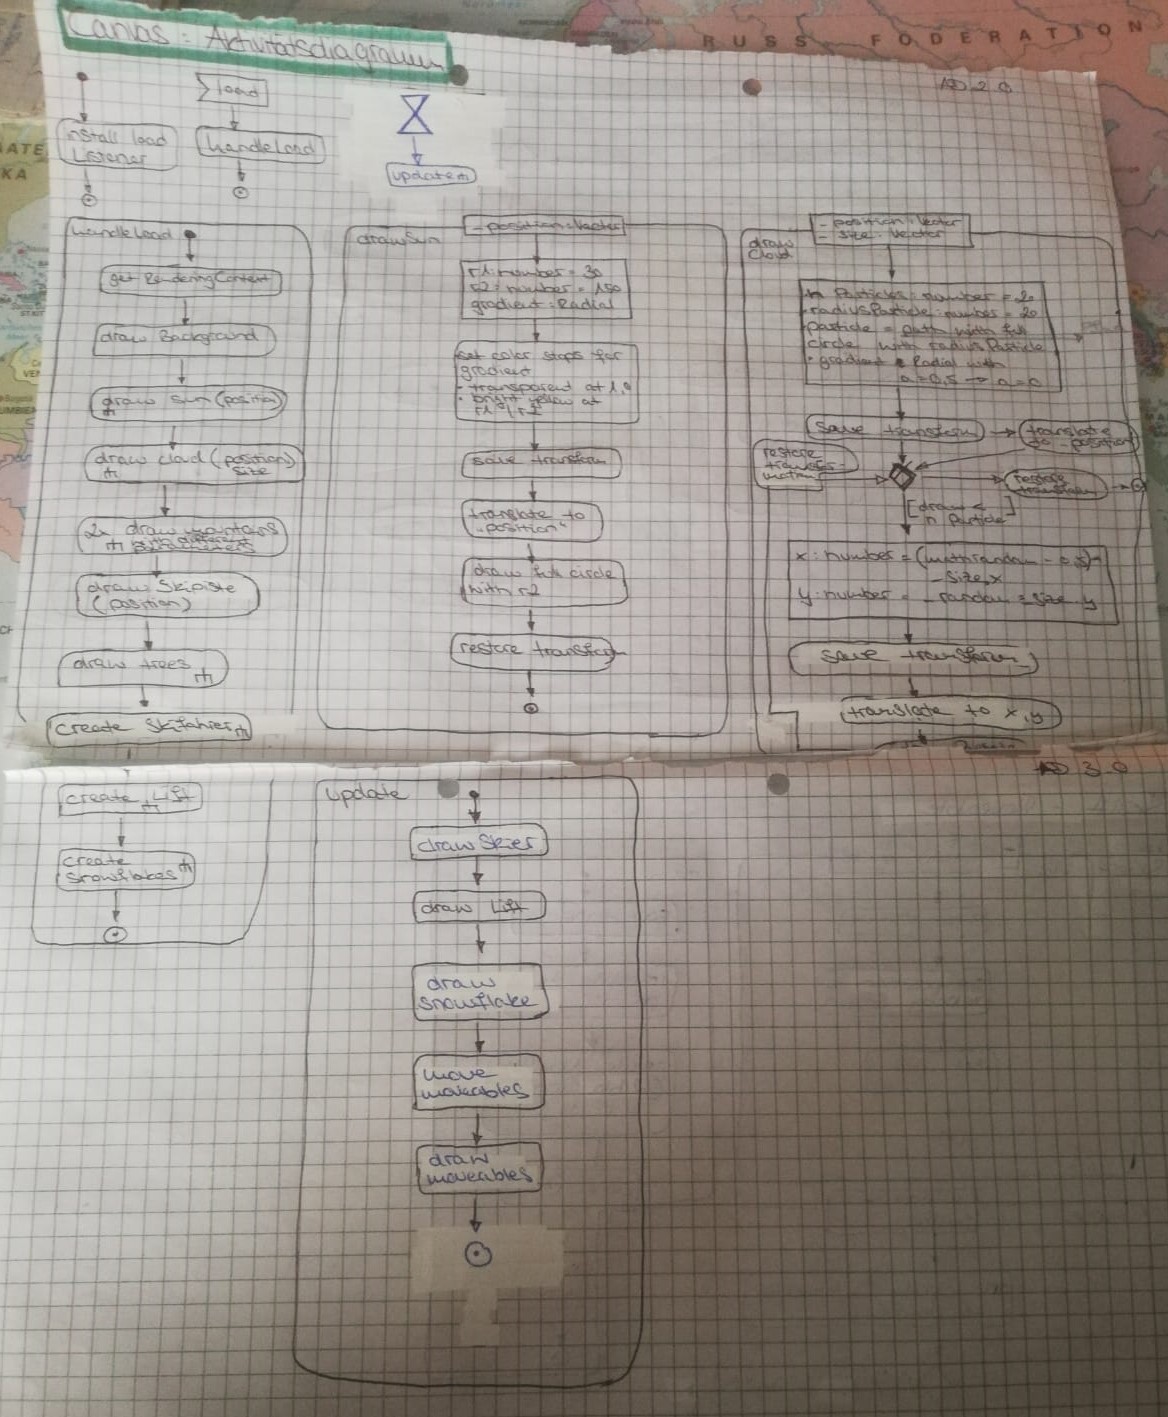 RUSS FODERATION
Canvas: Aktivitätsdiagramm
AD 2.0
load
install load
Listener
handleLoad
update
handleLoad
get RenderingContext
draw Background
draw Sun (position)
draw cloud (position)
size
2x draw mountains
with different
parameters
draw Skipiste
(position)
draw trees
create Skifahrer
drawSun
- position: Vector
r1: number = 30
r2: number = 150
gradient: Radial
set color stops for
gradient
• transparent at 1,0
• bright yellow at
r1/r2
save transform
translate to
"position"
draw full circle
with r2
restore transform
draw
Cloud
- position: Vector
- size: Vector
n Particles: number = 20
• radiusParticle: number = 20
particle = path with full
circle with radiusParticle
• gradient = Radial with
a=0,5 → a=0
save transform
translate
to _position
restore
restore
transform
[draw <
n Particle]
x: number = (math random - 0,5)*
_size.x
y: number = - random * size y
save transform
translate to x,y
AD 3.0
create Lift
create
snowflakes
update
draw Skier
draw Lift
draw
snowflake
move
moveables
draw
moveables